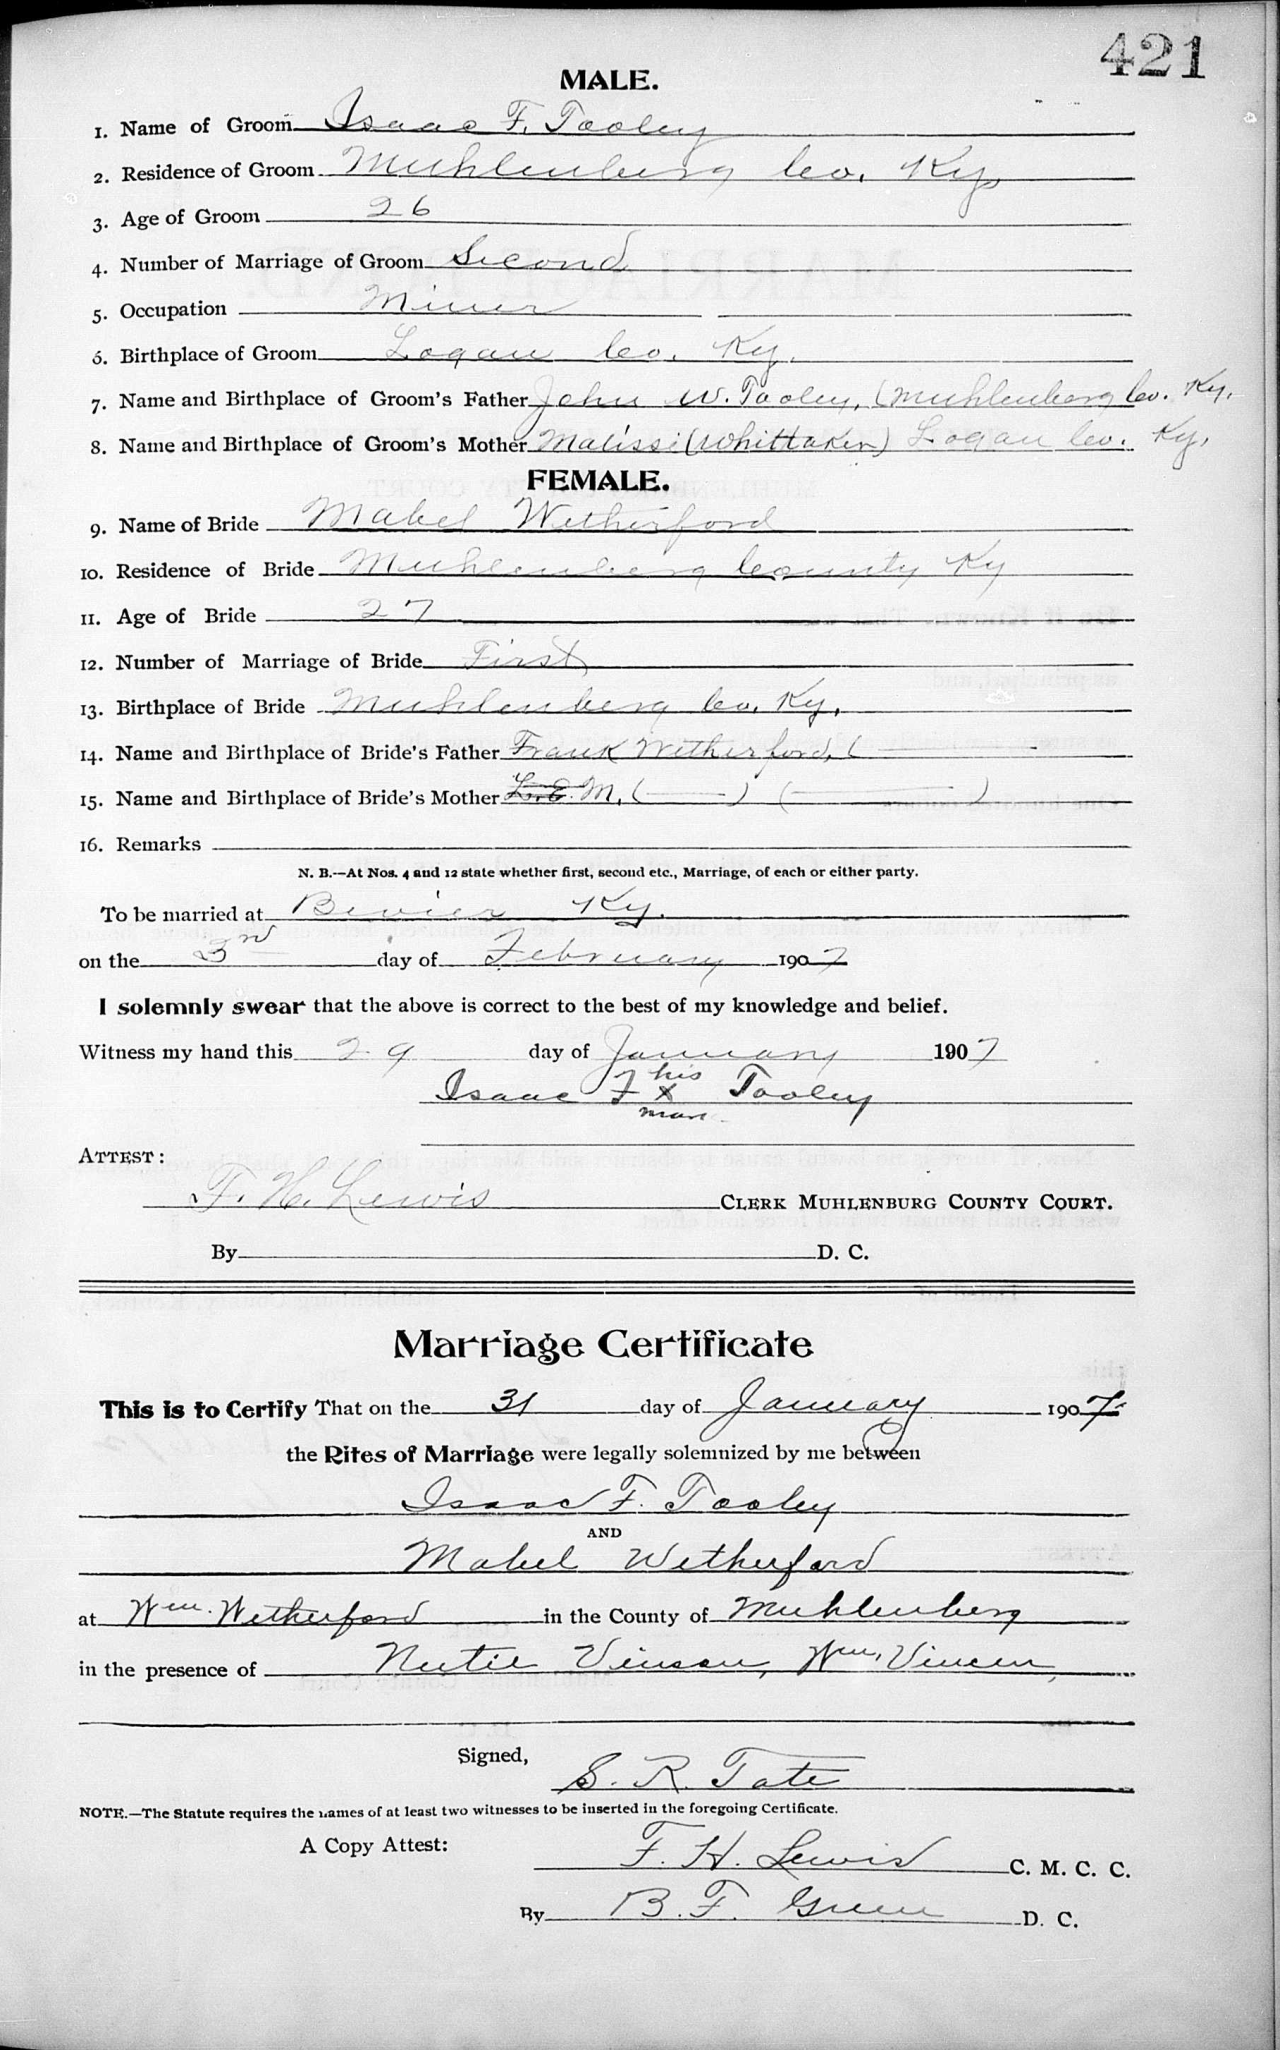 421
MALE.
1. Name of Groom Isaac F. Tooley
2. Residence of Groom Muhlenberg Co. Ky.
3. Age of Groom 26
4. Number of Marriage of Groom Second
5. Occupation Miner
6. Birthplace of Groom Logan Co. Ky.
7. Name and Birthplace of Groom's Father John W. Tooley, (Muhlenberg Co. Ky.
8. Name and Birthplace of Groom's Mother Malissi (Whittaker) Logan Co. Ky.
FEMALE.
9. Name of Bride Mabel Wetherford
10. Residence of Bride Muhlenberg County Ky
11. Age of Bride 27
12. Number of Marriage of Bride First
13. Birthplace of Bride Muhlenberg Co. Ky.
14. Name and Birthplace of Bride's Father Frank Wetherford, (
15. Name and Birthplace of Bride's Mother L. E. M. ( ) ( )
16. Remarks
N. B.—At Nos. 4 and 12 state whether first, second etc., Marriage, of each or either party.
To be married at Bevier Ky.
on the 3rd day of February 1907
I solemnly swear that the above is correct to the best of my knowledge and belief.
Witness my hand this 29 day of January 1907
his
Isaac F x Tooley
mark
ATTEST:
F. H. Lewis CLERK MUHLENBURG COUNTY COURT.
By D. C.
Marriage Certificate
This is to Certify That on the 31 day of January 1907
the Rites of Marriage were legally solemnized by me between
Isaac F. Tooley
AND
Mabel Wetherford
at Wm. Wetherford in the County of Muhlenberg
in the presence of Nutie Vinson, Wm. Vincen,
Signed,
S. R. Tate
NOTE.—The Statute requires the names of at least two witnesses to be inserted in the foregoing Certificate.
A Copy Attest:
F. H. Lewis C. M. C. C.
By B. F. Green D. C.